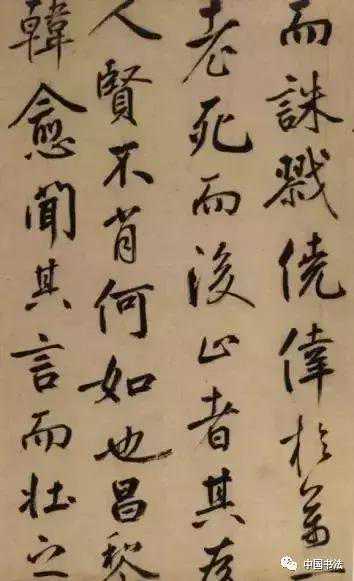 而誅戮僥倖於萬一
老死而後止者其為
人賢不肖何如也昌黎
韓愈聞其言而壯之
中国书法